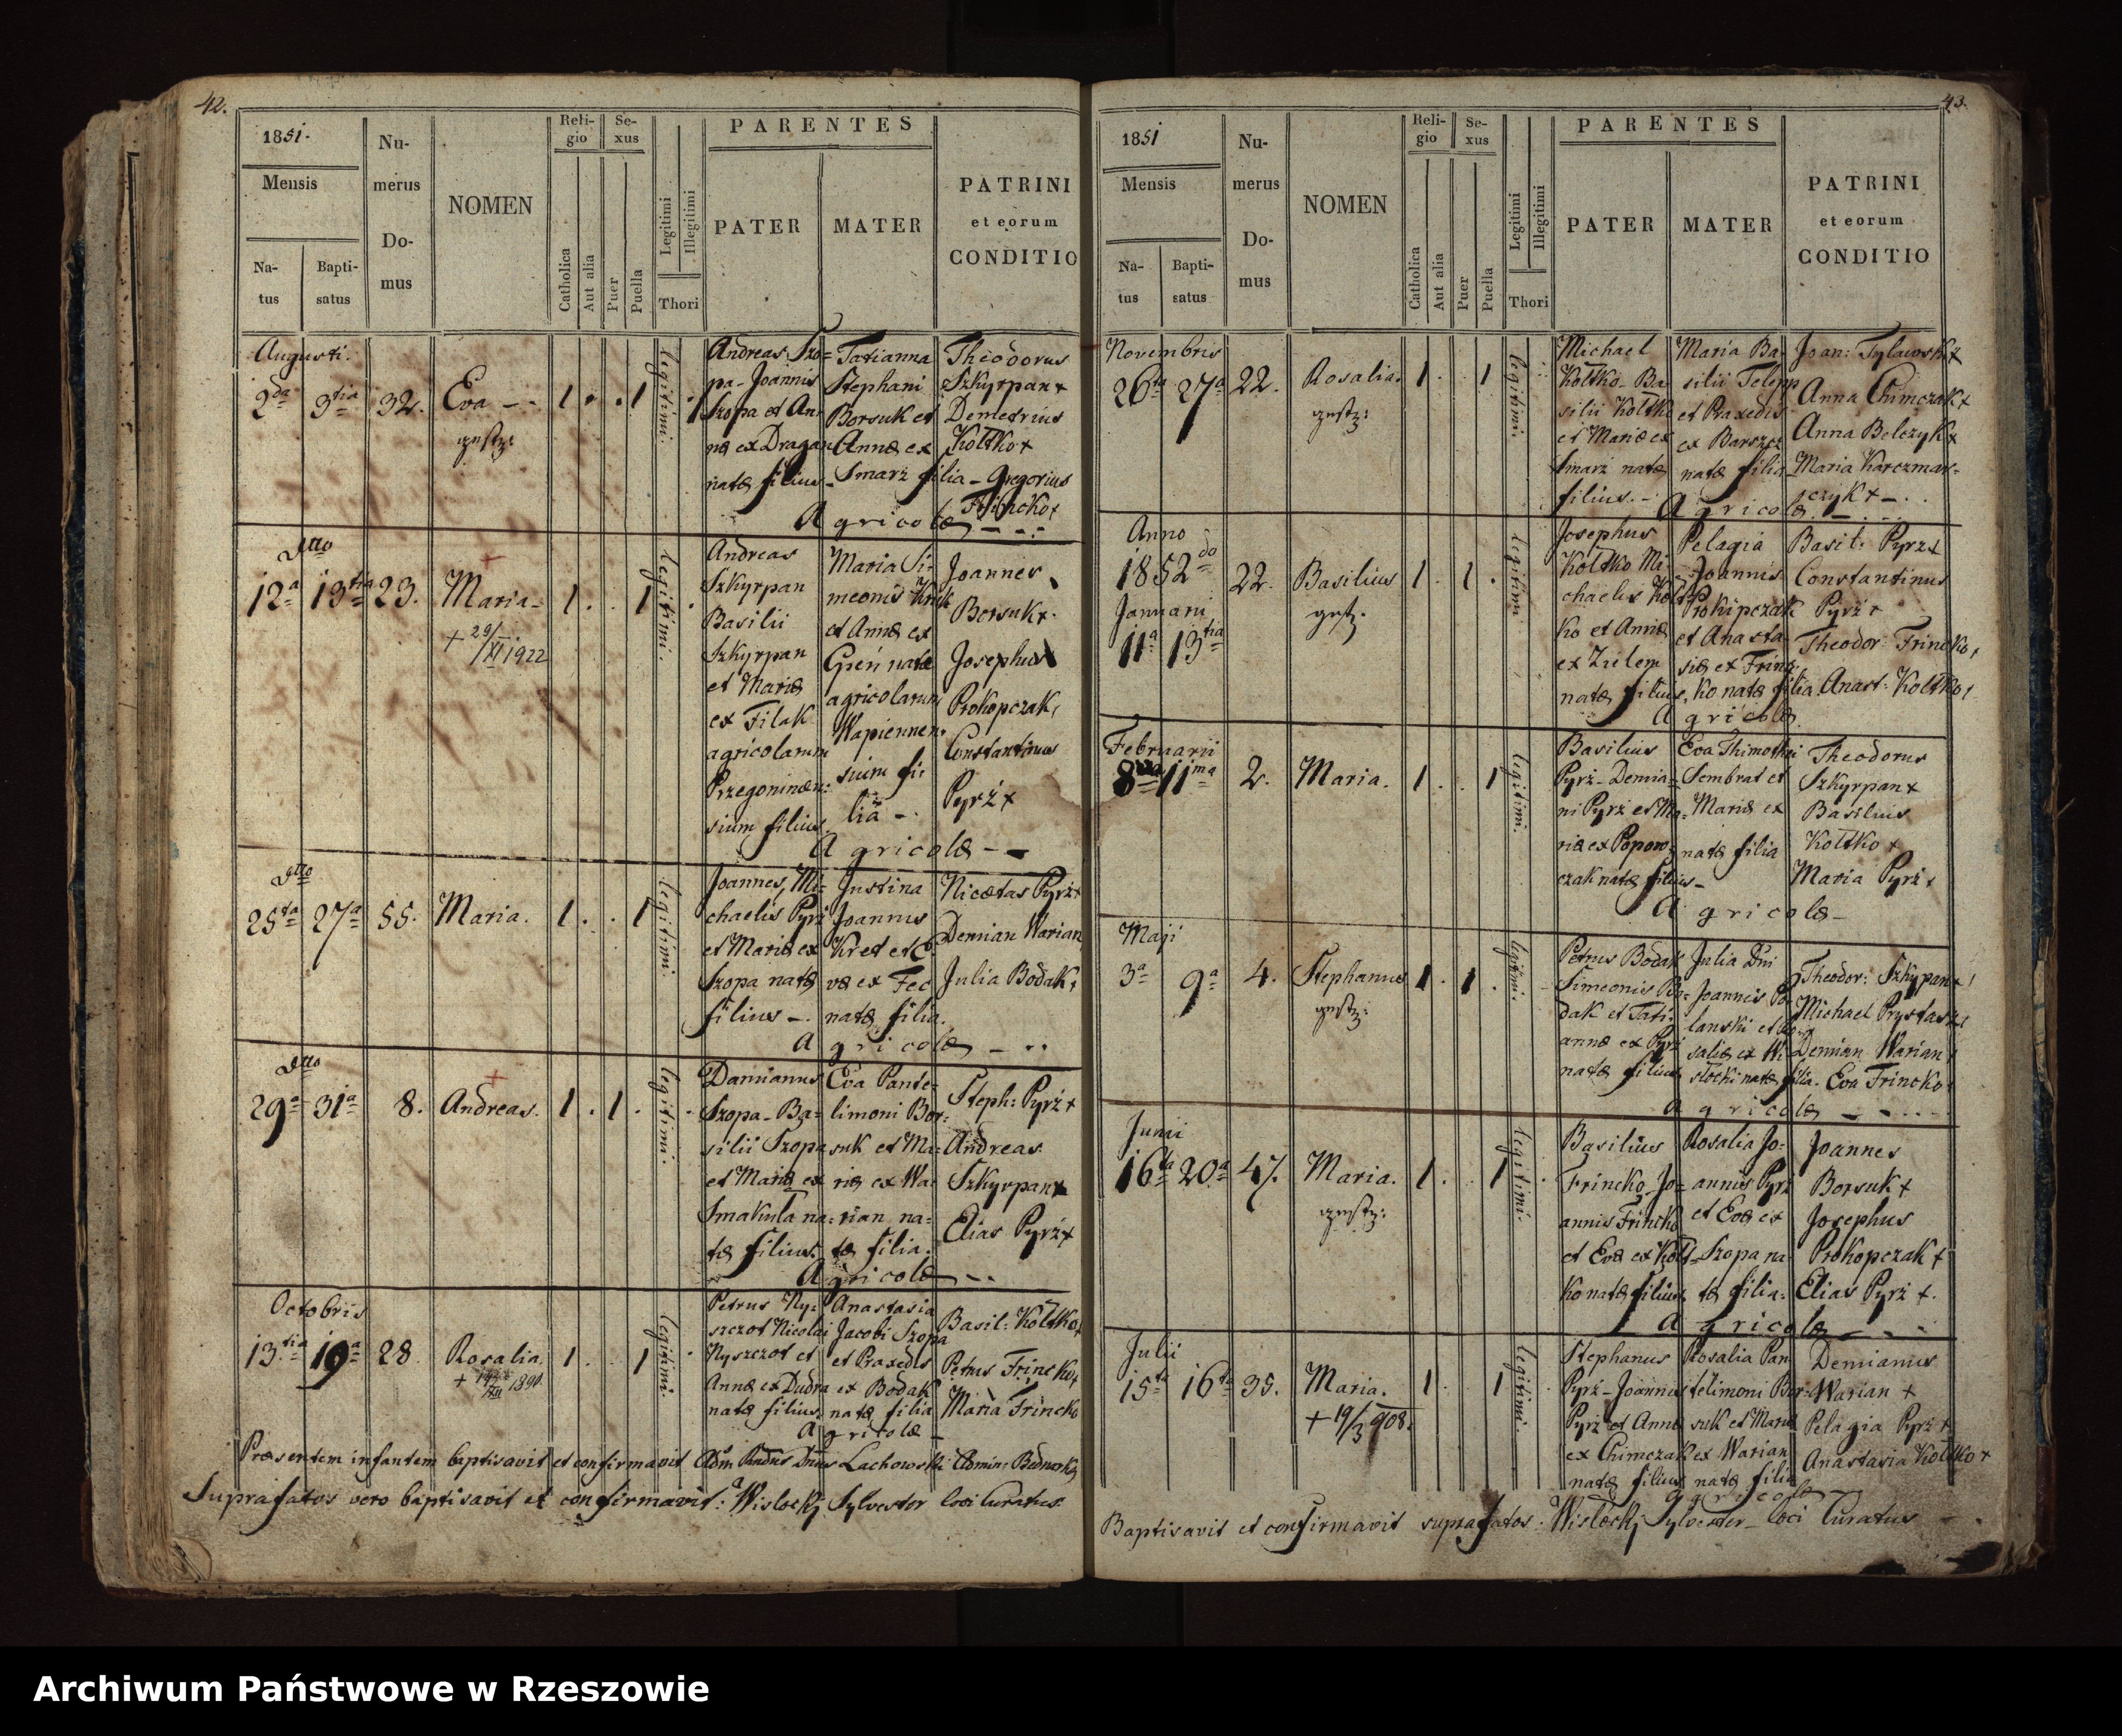 42.
1851.
Mensis
Na-
tus
Bapti-
satus
Nu-
merus
Do-
mus
NOMEN
Reli-
gio
Catholica
Aut alia
Se-
xus
Puer
Puella
Legitimi
Illegitimi
Thori
PARENTES
PATER
MATER
PATRINI
et eorum
CONDITIO
Augusti.
2da 3tia 32. Eva
1 1
legitimi.
Andreas Szo=
pa - Joannis
Szopa et An=
næ ex Dragan
natæ filius
Tatianna
Stephani
Borsuk et
Annæ ex
Smarz filia
Theodorus
Szkyrpan +
Demetrius
Koltko +
Gregorius
Frincko +
Agricolæ
Dtto
12a 13tia 23. Maria
+ 29/XI 1922
1 1
legitimi.
Andreas
Szkyrpan
Basilii
Szkyrpan
et Mariæ
ex Filak
agricolarum
Przegoninen=
sium filius.
Maria Si=
meonis
et Annæ ex
Gień natæ
agricolarum
Wapiennen=
sium fi=
lia
Joannes
Borsuk +
Josephus
Prokopczak,
Constantinus
Pyrż +
Agricolæ
Dtto
25ta 27a 55. Maria.
1 1
legitimi.
Joannes, Mi=
chaelis Pyrż
et Mariæ ex
Szopa natæ
filius
Justina
Joannis
Kret et E=
væ ex Fec
natæ filia.
Nicætas Pyrż +
Demian Warian
Julia Bodak,
Agricolæ
Dtto
29a 31a 8. Andreas.
1 1
legitimi.
Damianus
Szopa - Ba=
silii Szopa
et Mariæ ex
Smakula na=
tæ filius.
Eva Pante=
limoni Bor=
suk et Ma=
riæ ex Wa=
rian na=
tæ filia.
Steph: Pyrż +
Andreas
Szkyrpan +
Elias Pyrż +
Agricolæ
Octobris
13tia 19a 28 Rosalia.
1 1
legitimi.
Petrus Ny=
szczot Nicolai
Nyszczot et
Annæ ex Dudra
natæ filius,
Anastasia
Jacobi Szopa
et Praxedis
ex Bodak
natæ filia
Basil: Koltko,
Petrus Frincko,
Maria Frincko
Agricolæ
Præsentem infantem baptisavit et confirmavit Adm Rndus Dnus Lachowski
Suprafatos vero baptisavit et confirmavit: Wislockj Sylvester loci Curatus.
43.
1851
Mensis
Na-
tus
Bapti-
satus
Nu-
merus
Do-
mus
NOMEN
Reli-
gio
Catholica
Aut alia
Se-
xus
Puer
Puella
Legitimi
Illegitimi
Thori
PARENTES
PATER
MATER
PATRINI
et eorum
CONDITIO
Novembris
26ta 27a 22. Rosalia.
1 1
legitimi.
Michael
Koltko - Ba=
silii Koltko
et Mariæ ex
Smarz natæ
filius.
Maria Ba=
silii Telepp
et Praxedis
ex Barszcz
natæ filia
Joan: Tylawsk +
Anna Chimczak +
Anna Belczyk +
Maria Karczmar=
szczyk +
Agricolæ
Anno
1852do
Januarii
11a 13tia
22. Basilius
1 1
legitimi
Josephus
Koltko Mi=
chaelis Kolt=
ko et Annæ
ex Zielem
natæ filius,
Pelagia
Joannis
Prokipczak
et Anasta=
siæ ex Frinc=
ko natæ filia
Basil: Pyrż +
Constantinus
Pyrż +
Theodor: Frincko,
Anast: Koltko,
Agricolæ.
Februarii
8va 11ma 2. Maria.
1 1
legitimi.
Basilius
Pyrż - Demia=
ni Pyrż et Ma=
riæ ex Popow=
czak natæ filius
Eva Thimothei
Sembrat et
Mariæ ex
natæ filia
Theodorus
Szkyrpan +
Basilius
Koltko +
Maria Pyrż +
Agricolæ
Maji
3a 9a 4. Stephanus
1 1
legitimi.
Petrus Bodak
Simeonis Bo=
dak et Tati=
annæ ex Pyrż
natæ filius
Julia Dni
Joannis Po=
lanski et Ro=
saliæ ex Wi=
slocki natæ filia.
Theodor: Szkyrpan +
Michael Prystasz
Demian Warian,
Eva Frincko,
Agricolæ
Junii
16ta 20a 47. Maria.
1 1
legitimi.
Basilius
Frincko, Jo=
annis Frincko
et Evæ ex Kolt=
ko natæ filius
Rosalia Jo=
annis Pyrż
et Evæ ex
Szopa na=
tæ filia.
Joannes
Borsuk +
Josephus
Prokopczak +
Elias Pyrż +.
Agricolæ
Julii
15ta 16ta 35. Maria.
+ 19/3 908.
1 1
legitimi.
Stephanus
Pyrż - Joannis
Pyrż et Annæ
ex Chimczak
natæ filius
Rosalia Pan=
telimoni Bor=
suk et Mariæ
ex Warian
natæ filia
Demianus
Warian +
Pelagia Pyrż +
Anastasia Koltko +
Agricolæ
Baptisavit et confirmavit suprafatos: Wislockj Sylvester - loci Curatus
Archiwum Państwowe w Rzeszowie